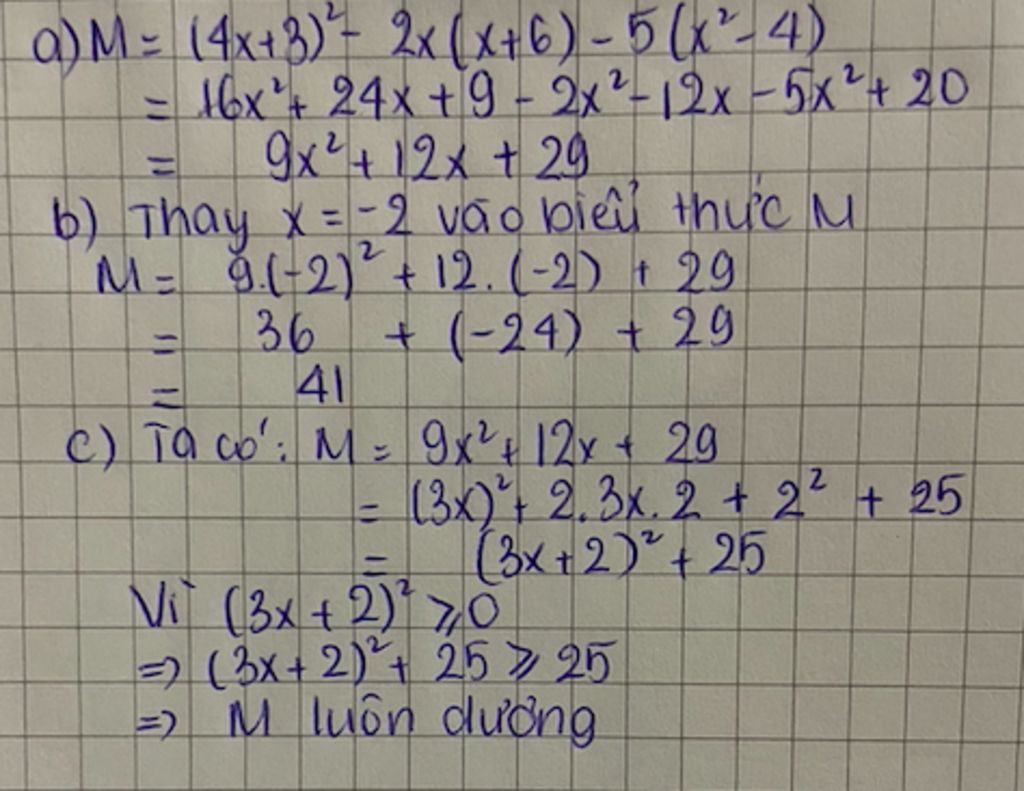 a) M = (4x+3)² - 2x(x+6) - 5(x² - 4)
= 16x² + 24x + 9 - 2x² - 12x - 5x² + 20
= 9x² + 12x + 29
b) Thay x = -2 vào biểu thức M
M = 9.(-2)² + 12.(-2) + 29
= 36 + (-24) + 29
= 41
c) Ta có: M = 9x² + 12x + 29
= (3x)² + 2.3x.2 + 2² + 25
= (3x+2)² + 25
Vì (3x+2)² ⩾ 0
=> (3x+2)² + 25 ⩾ 25
=> M luôn dương